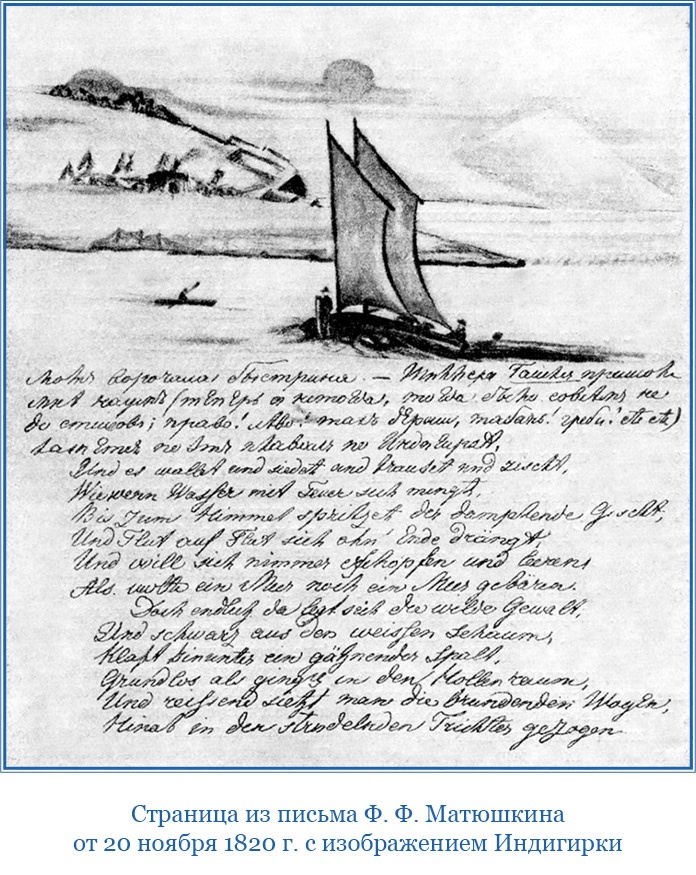 ворочала быстрина. — Шиллера пришолъ
мнѣ на умъ (теперь тогда было совсѣмъ не
до стиховъ; право! лѣво! такъ держи, табань! греби! etc etc)
по Индигиркѣ,
Und es wallet und siedet und brauset und zischt,
Wie wenn Wasser mit Feuer sich mengt,
Bis zum Himmel spritzet der dampfende Gischt,
Und Flut auf Flut sich ohn' Ende drängt,
Und will sich nimmer erschöpfen und leeren
Als wollte ein Meer noch ein Meer gebären.
Doch endlich da legt sich die wilde Gewalt,
Und schwarz aus den weissen Schaum,
Klaft hinunter ein gähnender Spalt,
Grundlos als ging's in den Hollenraum,
Und reissend sieht man die brundenden Wogen,
Hinab in den strudelnden Trichter gezogen
Страница из письма Ф. Ф. Матюшкина
от 20 ноября 1820 г. с изображением Индигирки